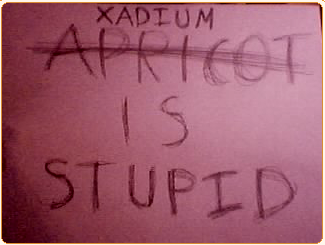 XADIUM
APRICOT
IS
STUPID